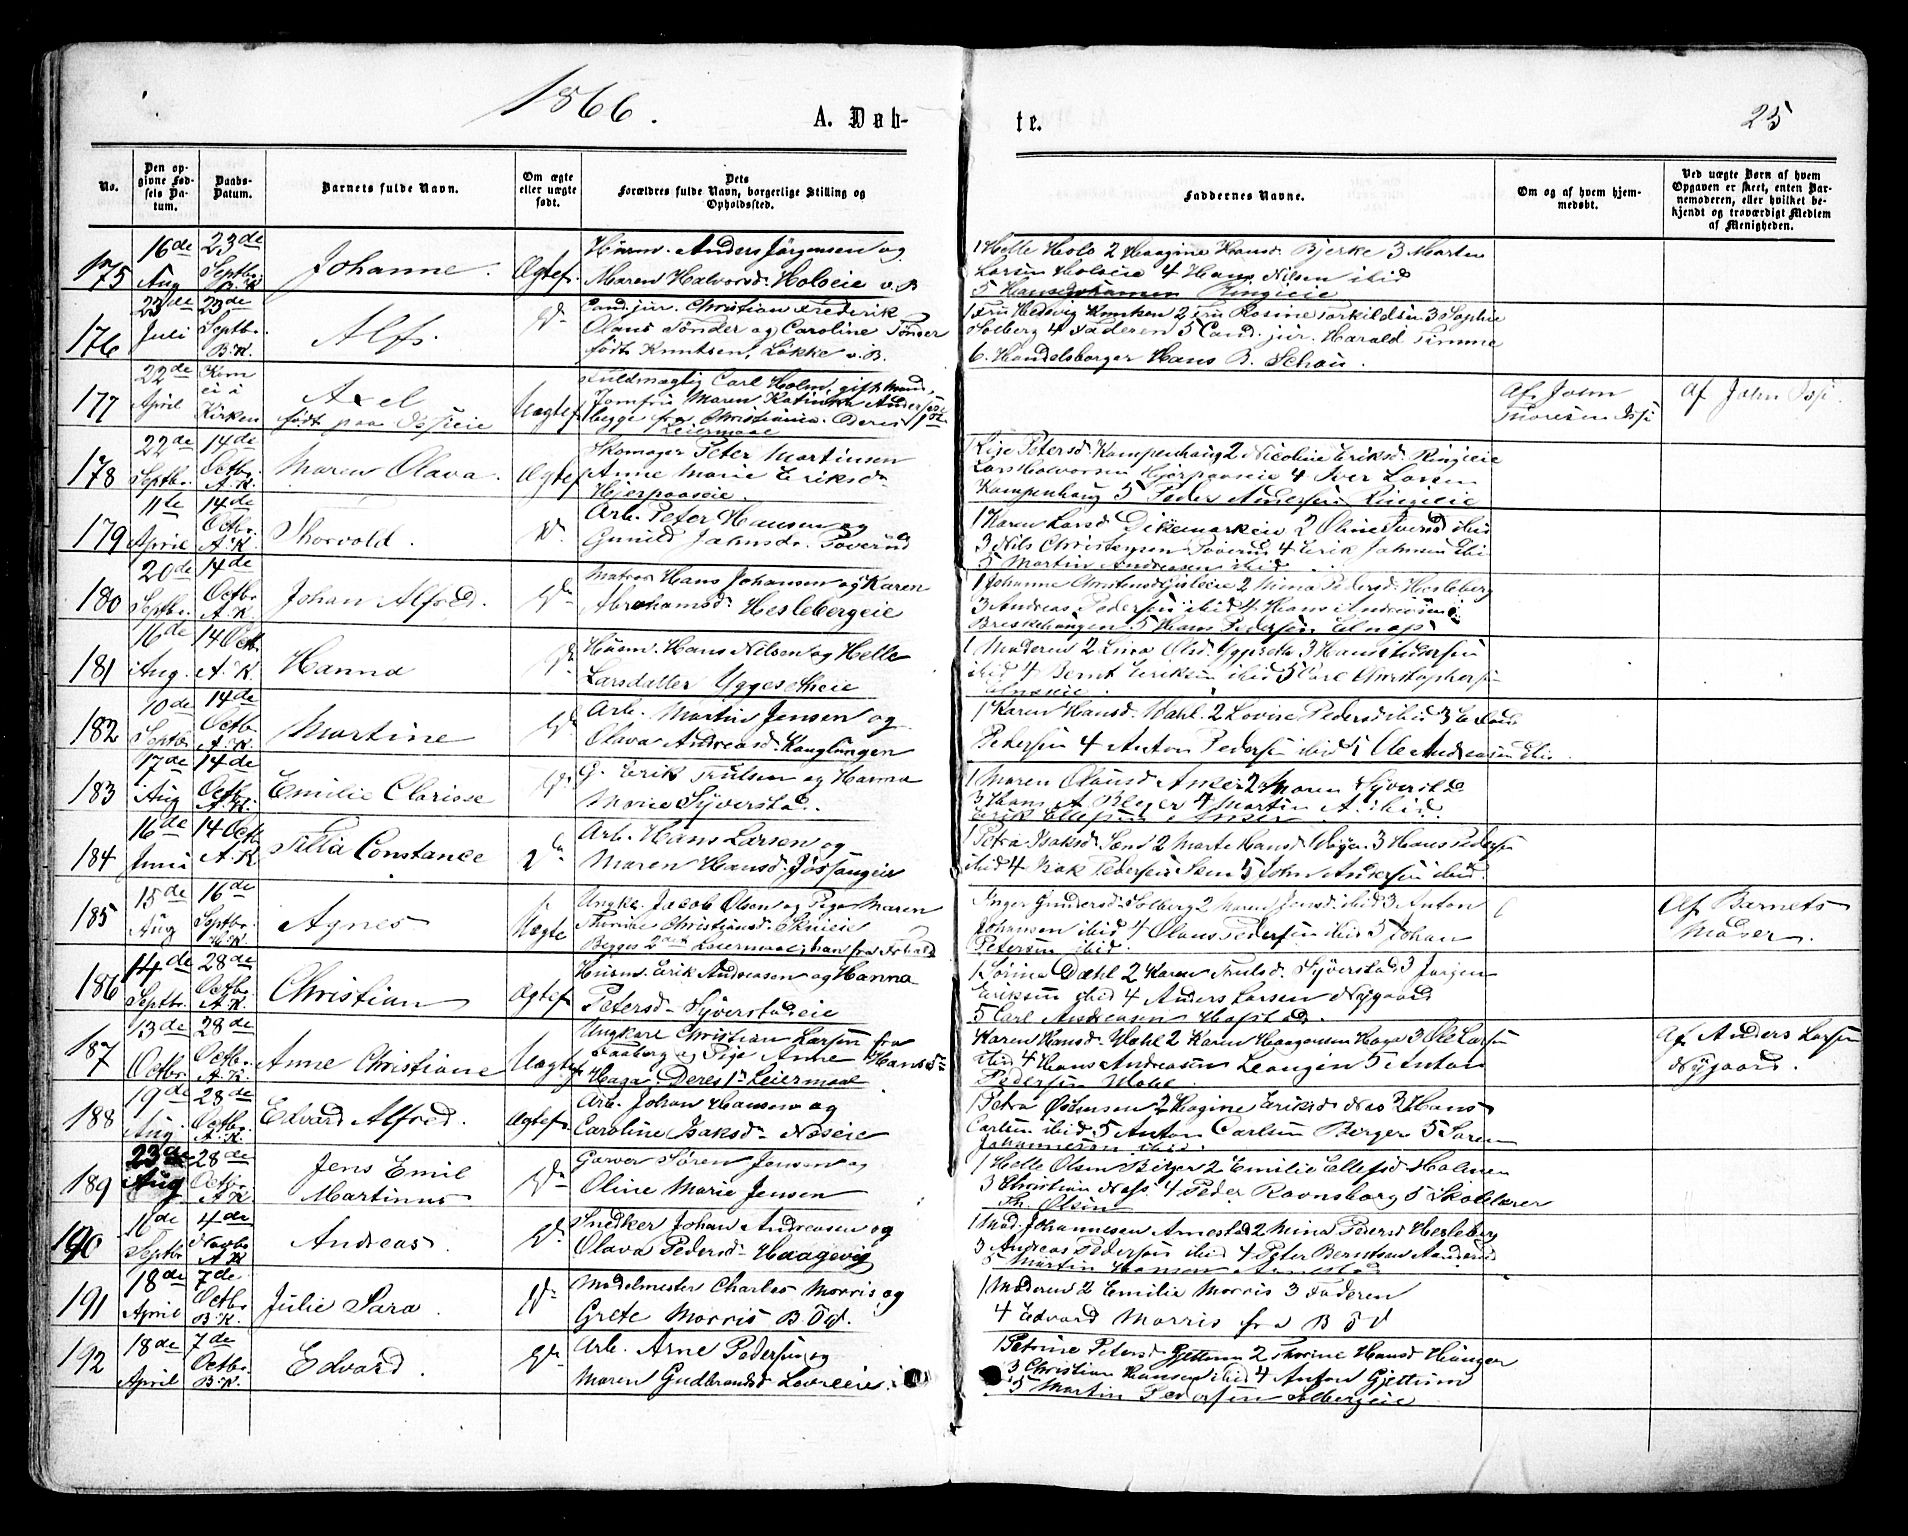 1866.
A. Døb-
te.
25
No.
Den op-
givne Fød-
sels Da-
tum.
Daabs-
Datum.
Barnets fulde Navn.
Om ægte
eller uægte
født.
Dets
Forældres fulde Navn, borgerlige Stilling og
Opholdssted.
Faddernes Navne.
Om og af hvem hjem-
medøbt.
Ved uægte Børn af hvem
Opgaven er skeet, enten Bar-
nemoderen, eller hvilket be-
kjendt og troværdigt Medlem
af Menigheden.
175
16de
Aug
23de
Septbr.
B.K
Johanne.
Ægtef.
Huusm. Anders Jørgensen og
Maren Halvorsd. Holoeie v. B
1 Helle Holo 2 Haagine Hansd. Bjerke 3 Marten
Larsen Holoeie 4 Hans Nilsen ibid
5 Hans Johansen Ringieie
176
23de
Juli
23de
Septbr.
B.K.
Alf.
Do
Cand. jur. Christian Frederik
Olaus Tønder og Caroline Tønder
født Knutsen, Løkke v. B.
1 Fru Hedvig 2 Fru Rosine Torkildsen 3 Sophie
Solberg 4 Faderen 5 Cand. jur. Harald Timme
6. Handelsborger Hans B. Schou.
177
22de
April
Kom
ei i
Kirken
Axel
født paa
Uægtef
Fuldmægtig Carl Holm, gift Mand,
Jomfru Maren Katinka
begge fra Christiania. Deres 1ste
Leiermaal
Af John
Thoresen
Af John
178
22de
Septbr.
14de
Octbr.
A.K
Maren Olava.
Ægtef
Skomager Peter Martinsen
Anne Marie Eriksd
Hjerpaaseie.
1 Pige Petersd. Kampenhaug 2 Nicoline Eriksd. Ringieie
Lars Halvorsen Hjerpaaseie 4 Iver Larsen
Kampenhaug 5 Peder Andersen Ringieie
179
11te
April
14de
Octbr.
A.K
Thorvald.
Do
Arb. Peter Hansen og
Gunild Jahnsd. Toverud
1 Karen Larsd Dikemarkeie 2 Oline Iversd ibid
3 Nils Christensen Toverud 4 Erik Jahnsen ibid
5 Martin Andreasen ibid
180
20de
Septbr.
14de
Octbr.
A.K
Johan Alfred.
Do
Matros Hans Johansen og Karen
Abrahamsd. Heslebergeie
1 Johanne Gisleeie 2 Mina Pedersd. Hesleberg
3 Andreas Pedersen ibid 4 Hans Andersen
Briskehaugen 5 Hans Pedersen Elnæs
181
16de
Aug.
14 Octb.
A.K
Hanna
Do
Huusm. Hans Nilsen og Helle
Larsdatter Yggeseteie
1 Moderen 2 Lina Olsd. Yggeseth 3 Hans Pedersen
ibid 4 Bernt Eriksen ibid 5 Carl Christophersen
182
10de
Septbr.
14de
Octbr.
A.K.
Martine
Do
Arb. Martin Jensen og
Olava Andreasd. Konglungen
1 Karen Hansd. Wahl. 2 Lovise Pedersd ibid 3
Pedersen 4 Anton Pedersen ibid 5 Ole Andreasen ibid
183
17de
Aug
14de
Octbr.
A.K.
Emilie Clarisse
Do
G. Erik Trulsen og Hanna
Marie Syverstad.
1 Maren Olausd 2 Maren Syverstad
3 Hans A. 4 Martin A. ibid.
Erik Ellefsen
184
16de
Juni
14 Octbr
A.K.
Constance
Do
Arb. Hans Larsen og
Maren Hansd.
1 Petra Isaksd. Sem 2 Marte Hansd 3 Hans Pedersen
ibid 4 Isak Pedersen Sem 5 John Andersen ibid.
185
15de
Aug
16de
Septbr.
Agnes
Uægte
Ungk. Jacob Olsen og Pige Maren
Thorine Christiansd. Skuieie
Begges 2det Leiermaal; han fra
Inger Gundersd. Solberg 2 Maren Jensd. ibid 3 Anton
Johansen ibid 4 Olaus Pedersen ibid 5 Johan
Petersen ibid.
Af Barnets
Moder.
186
14de
Septbr.
28de
Octbr.
A.K.
Christian
Ægtef
Huusm. Erik Andreasen og Hanna
Petersd. Syverstadeie
1 Sørine Dæhl 2 Karen Trulsd. Syverstad 3 Jørgen
Eriksen ibid 4 Anders Larsen Nygaard
5 Carl Andreasen Hofstad.
187
13de
Octbr.
28de
Octbr.
A.K.
Anne Christiane
Uægtef
Ungkarl Christian Larsen fra
og Pige Anne Hansd
Haga. Deres 1ste Leiermaal
Karen Hansd. Wahl 2 Karen Haagensen Haga 3 Ole Larsen
ibid 4 Hans Andreasen Leangen 5 Anton
Pedersen Wahl
Af Anders Larsen
Nygaard.
188
19de
Aug
28de
Octbr.
A.K.
Edvard Alfred.
Ægtef
Arb. Johan Hansen og
Caroline Isaksd. Næseie
1 Petra Østensen 2 Hagine Eriksd Næs 3 Hans
Carlsen ibid 5 Anton Carlsen Berger 5 Søren
Johannesen ibid.
189
23de
Aug
28de
Octbr.
A.K
Jens Emil
Martinus
Do
Garver Søren Jensen og
Oline Marie Jensen
1 Helle Olsen 2 Emilie Ellefsd Holmen
3 Christian Næss. 4 Peder Ravnsborg 5 Skolelærer
Th. Olsen
190
11de
Septbr
4de
Novbr
A.K
Andreas.
Do
Snedker Johan Andreasen og
Olava Pedersd. Haagevig
1 Mad. Johannesen Arnestad 2 Mina Pedersd Hesleberg
3 Andreas Pedersen ibid 4 Peter Berntsen
5 Martin Hansen Arnestad
191
18de
April
7de
Octbr.
B.K.
Julie Sara.
Do
Modelmester Charles Morris og
Grete Morris B. Öd.
1 Moderen 2 Emilie Morris 3 Faderen
4 Edvard Morris fra B Öd
192
18de
April
7de
Octbr.
B.K.
Edvard.
Do
Arb. Arne Pedersen og
Maren Gudbrandsd.
1 Petrine Petersd Gjettum 2 Thorine Hansd Haugen
3 Christian Hansen ibid 4 Anton Gjettum
5 Martin Pedersen Solbergeie